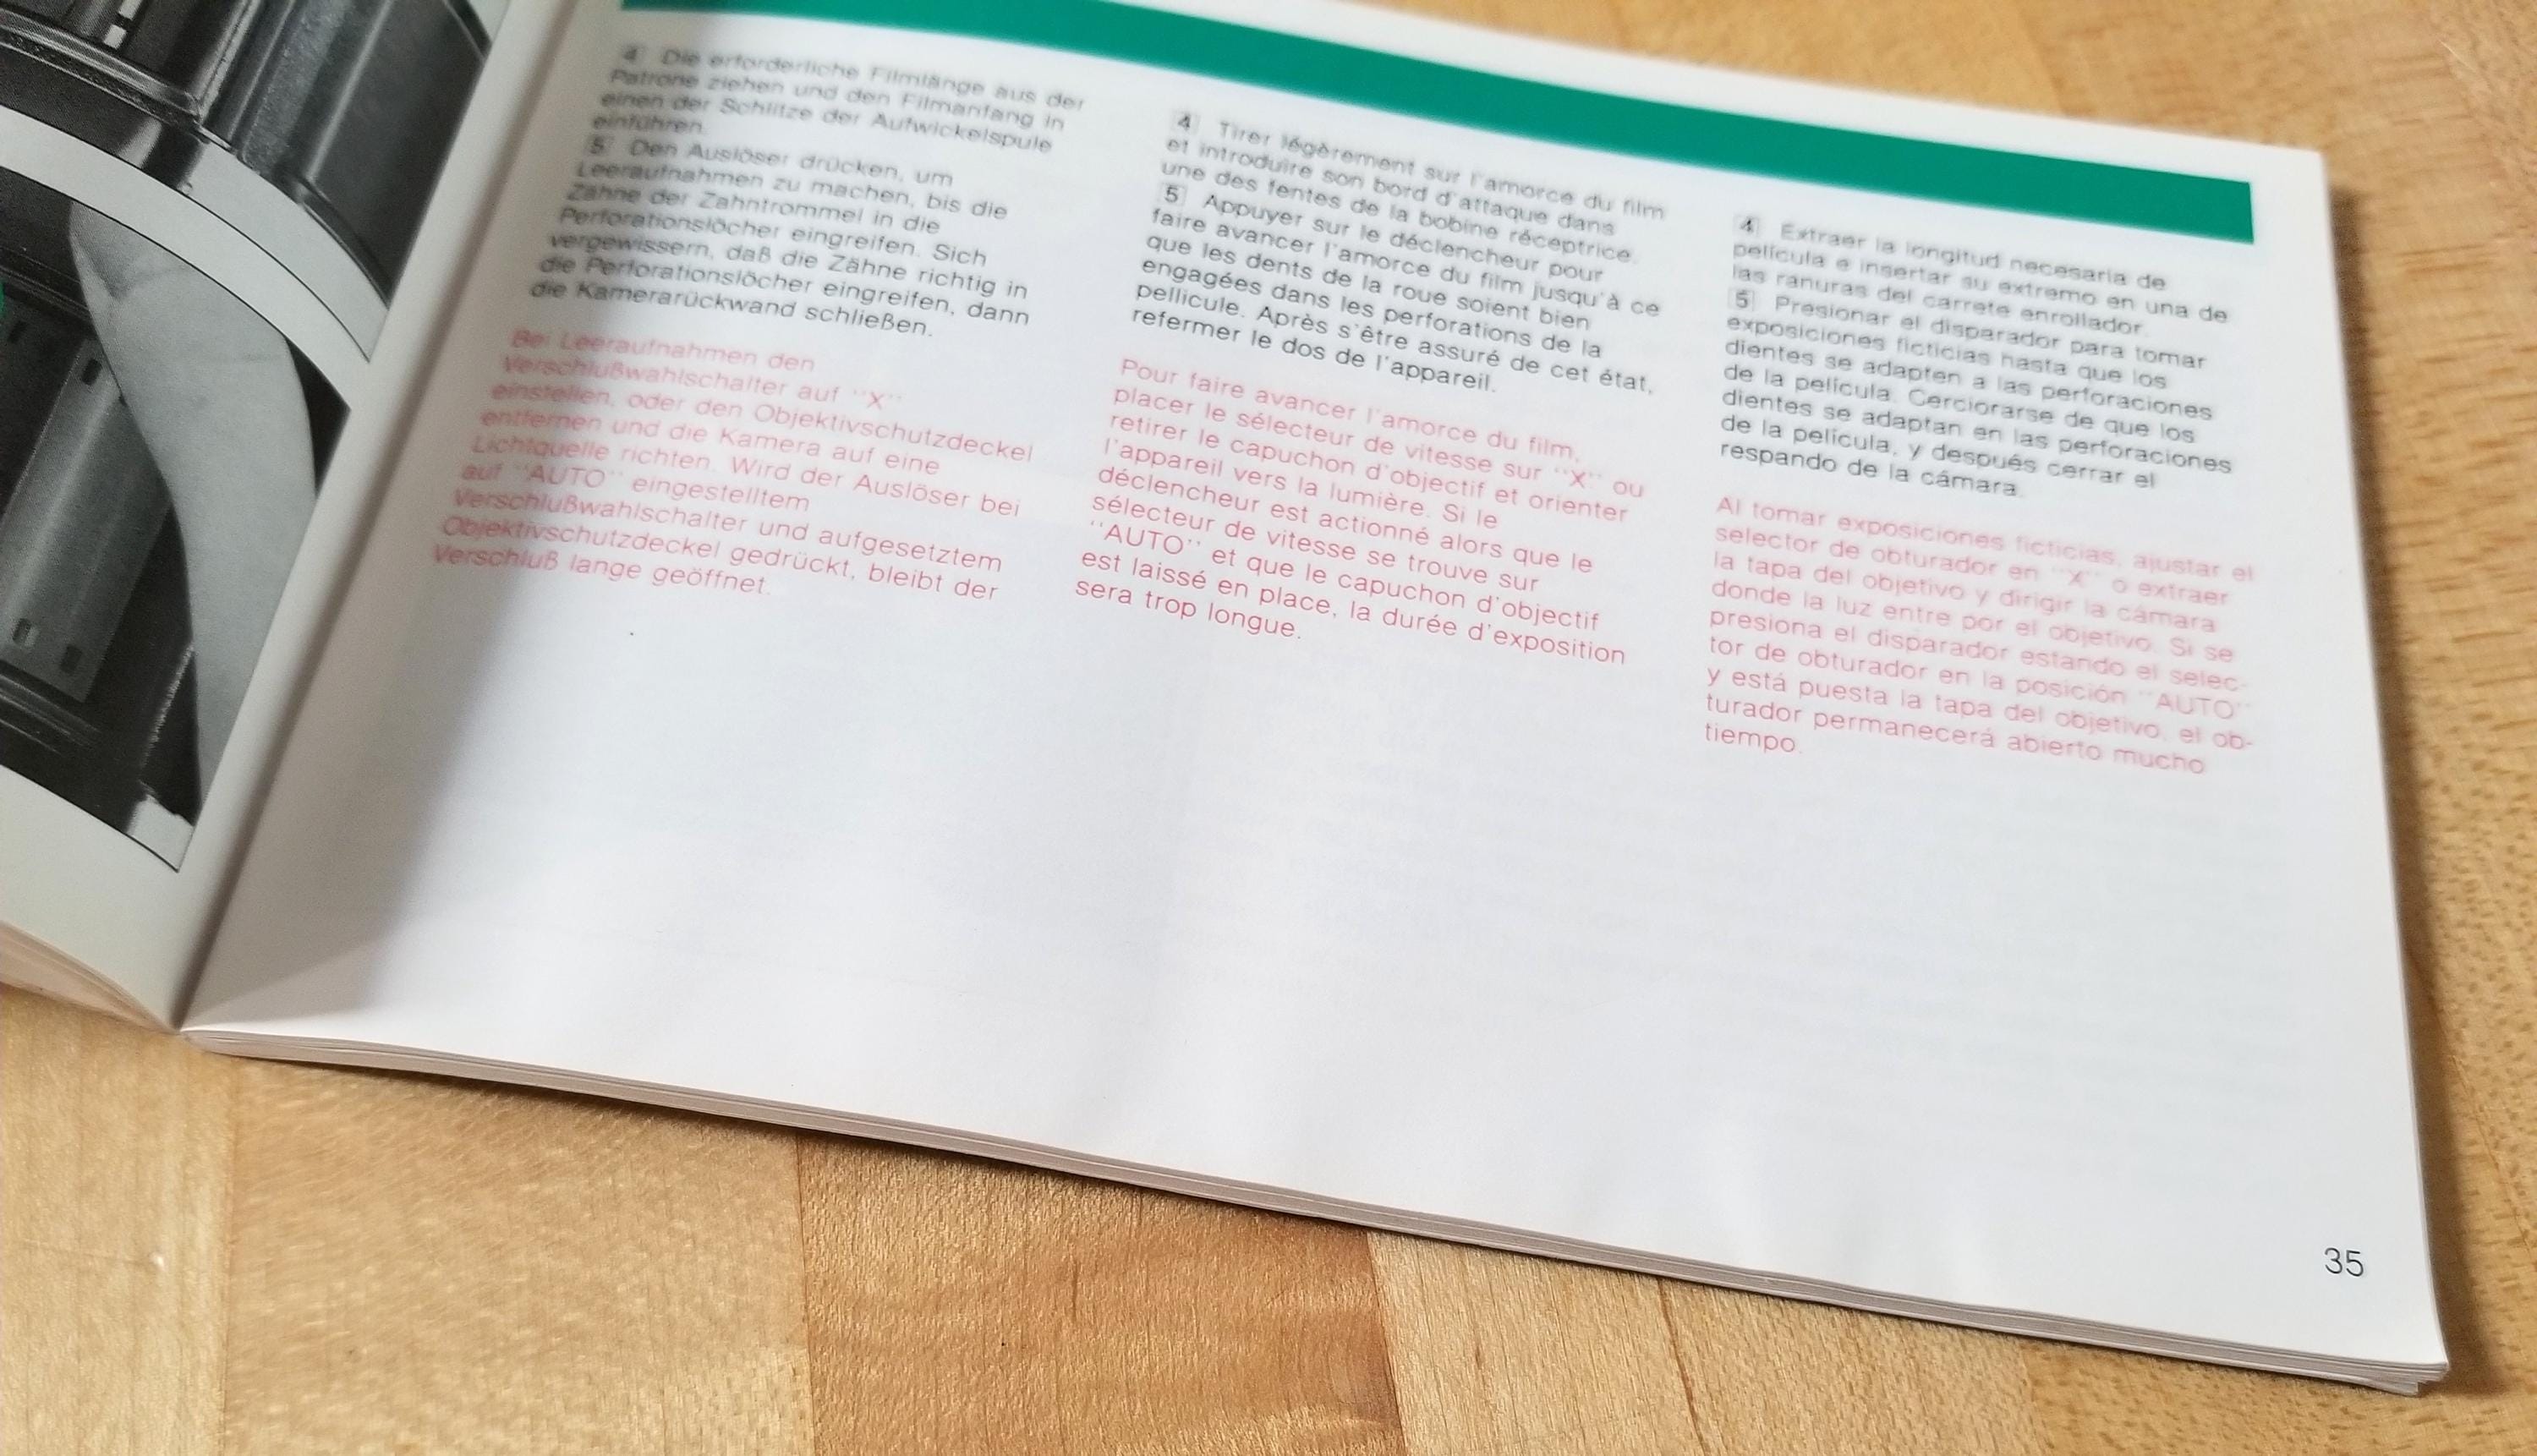 4 Die erforderliche Filmlänge aus der
Patrone ziehen und den Filmanfang in
einen der Schlitze der Aufwickelspule
einführen.
5 Den Auslöser drücken, um
Leeraufnahmen zu machen, bis die
Zähne der Zahntrommel in die
Perforationslöcher eingreifen. Sich
vergewissern, daß die Zähne richtig in
die Perforationslöcher eingreifen, dann
die Kamerarückwand schließen.
Bei Leeraufnahmen den
Verschlußwahlschalter auf ''X''
einstellen, oder den Objektivschutzdeckel
entfernen und die Kamera auf eine
Lichtquelle richten. Wird der Auslöser bei
auf ''AUTO'' eingestelltem
Verschlußwahlschalter und aufgesetztem
Objektivschutzdeckel gedrückt, bleibt der
Verschluß lange geöffnet.
4 Tirer légèrement sur l'amorce du film
et introduire son bord d'attaque dans
une des fentes de la bobine réceptrice.
5 Appuyer sur le déclencheur pour
faire avancer l'amorce du film jusqu'à ce
que les dents de la roue soient bien
engagées dans les perforations de la
pellicule. Après s'être assuré de cet état,
refermer le dos de l'appareil.
Pour faire avancer l'amorce du film,
placer le sélecteur de vitesse sur ''X'' ou
retirer le capuchon d'objectif et orienter
l'appareil vers la lumière. Si le
déclencheur est actionné alors que le
sélecteur de vitesse se trouve sur
''AUTO'' et que le capuchon d'objectif
est laissé en place, la durée d'exposition
sera trop longue.
4 Extraer la longitud necesaria de
película e insertar su extremo en una de
las ranuras del carrete enrollador.
5 Presionar el disparador para tomar
exposiciones ficticias hasta que los
dientes se adapten a las perforaciones
de la película. Cerciorarse de que los
dientes se adaptan en las perforaciones
de la película, y después cerrar el
respando de la cámara.
Al tomar exposiciones ficticias, ajustar el
selector de obturador en ''X'' o extraer
la tapa del objetivo y dirigir la cámara
donde la luz entre por el objetivo. Si se
presiona el disparador estando el selec-
tor de obturador en la posición ''AUTO''
y está puesta la tapa del objetivo, el ob-
turador permanecerá abierto mucho
tiempo.
35